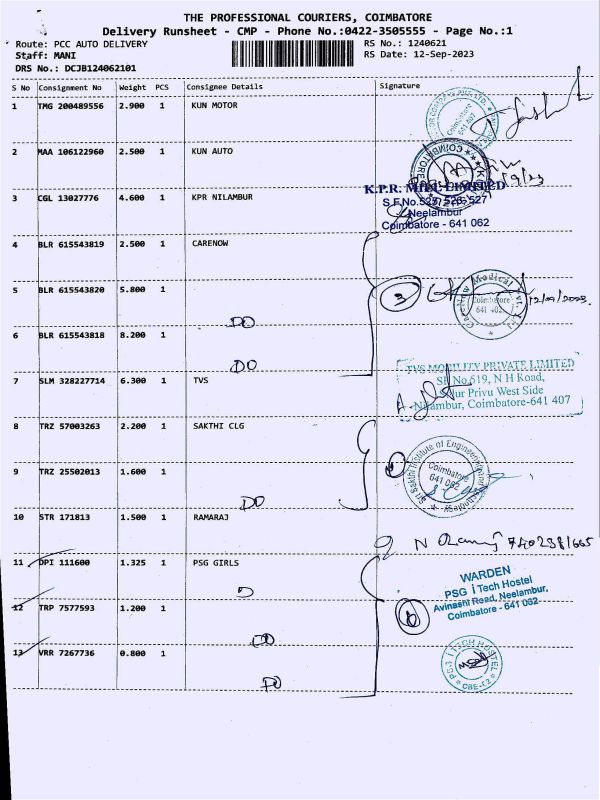 THE PROFESSIONAL COURIERS, COIMBATORE
Delivery Runsheet - CMP - Phone No.:0422-3505555 - Page No.:1
Route: PCC AUTO DELIVERY RS No.: 1240621
Staff: MANI RS Date: 12-Sep-2023
DRS No.: DCJB124062101
S No Consignment No Weight PCS Consignee Details Signature
1 TMG 200489556 2.900 1 KUN MOTOR
2 MAA 106122960 2.500 1 KUN AUTO
3 CGL 13027776 4.600 1 KPR NILAMBUR
K.P.R. MILL LIMITED
S.F.No.525, 526, 527
Neelambur
Coimbatore - 641 062
4 BLR 615543819 2.500 1 CARENOW
5 BLR 615543820 5.800 1
3
Coimbatore
641 402
12/09/2023
DO
6 BLR 615543818 8.200 1
DO
TVS MOBILITY PRIVATE LIMITED
SF No.619, N H Road,
Privu West Side
Nilambur, Coimbatore-641 407
7 SLM 328227714 6.300 1 TVS
8 TRZ 57003263 2.200 1 SAKTHI CLG
Sri Sakthi Institute of Engineering
Coimbatore
641 062
9 TRZ 25502013 1.600 1
DO
10 STR 171813 1.500 1 RAMARAJ
11 DPI 111600 1.325 1 PSG GIRLS
WARDEN
PSG iTech Hostel
Avinashi Road, Neelambur,
Coimbatore - 641 062
12 TRP 7577593 1.200 1
DO
13 VRR 7267736 0.800 1
PSG iTECH HOSTEL
CBE-62
DO